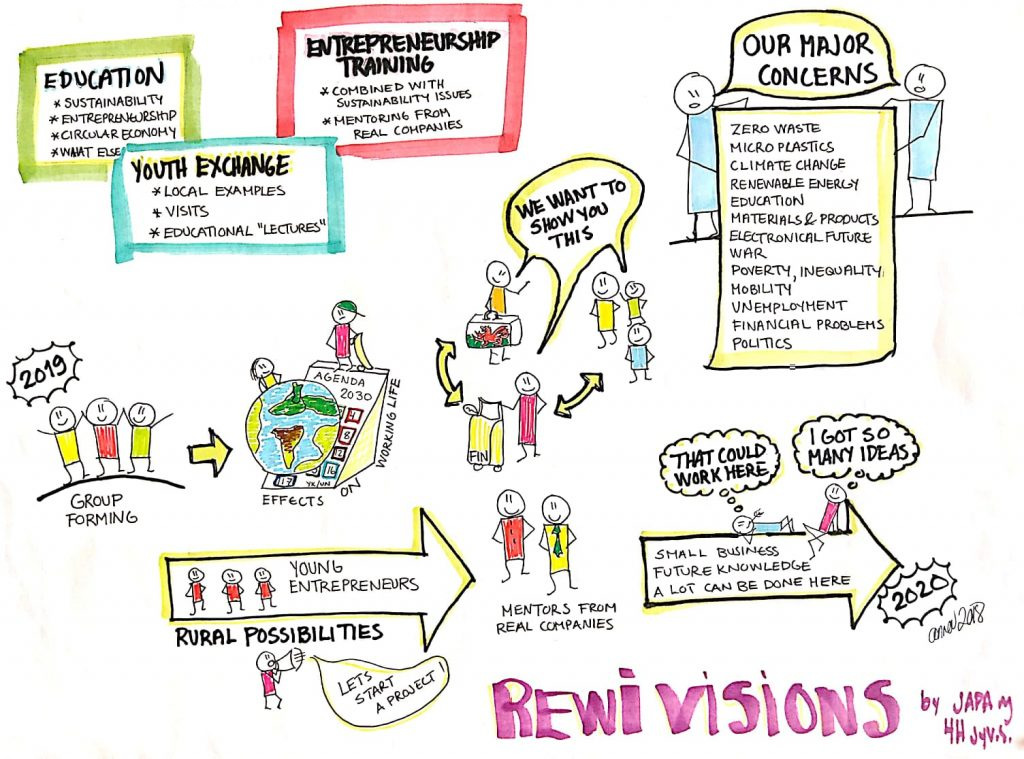 EDUCATION
* SUSTAINABILITY
* ENTREPRENEURSHIP
* CIRCULAR ECONOMY
* WHAT ELSE
ENTREPRENEURSHIP
TRAINING
* COMBINED WITH
SUSTAINABILITY ISSUES
* MENTORING FROM
REAL COMPANIES
YOUTH EXCHANGE
* LOCAL EXAMPLES
* VISITS
* EDUCATIONAL "LECTURES"
OUR MAJOR
CONCERNS
ZERO WASTE
MICRO PLASTICS
CLIMATE CHANGE
RENEWABLE ENERGY
EDUCATION
MATERIALS & PRODUCTS
ELECTRONICAL FUTURE
WAR
POVERTY, INEQUALITY,
MOBILITY
UNEMPLOYMENT
FINANCIAL PROBLEMS
POLITICS
WE WANT TO
SHOW YOU
THIS
2019
GROUP
FORMING
AGENDA
2030
WORKING LIFE
8
16
17
YK/UN
EFFECTS ON
FIN
THAT COULD
WORK HERE
I GOT SO
MANY IDEAS
YOUNG
ENTREPRENEURS
RURAL POSSIBILITIES
LETS
START
A PROJECT!
MENTORS FROM
REAL COMPANIES
SMALL BUSINESS
FUTURE KNOWLEDGE
A LOT CAN BE DONE HERE
2020
2018
REWI VISIONS
by JAPA ry
4H Jyv.S.